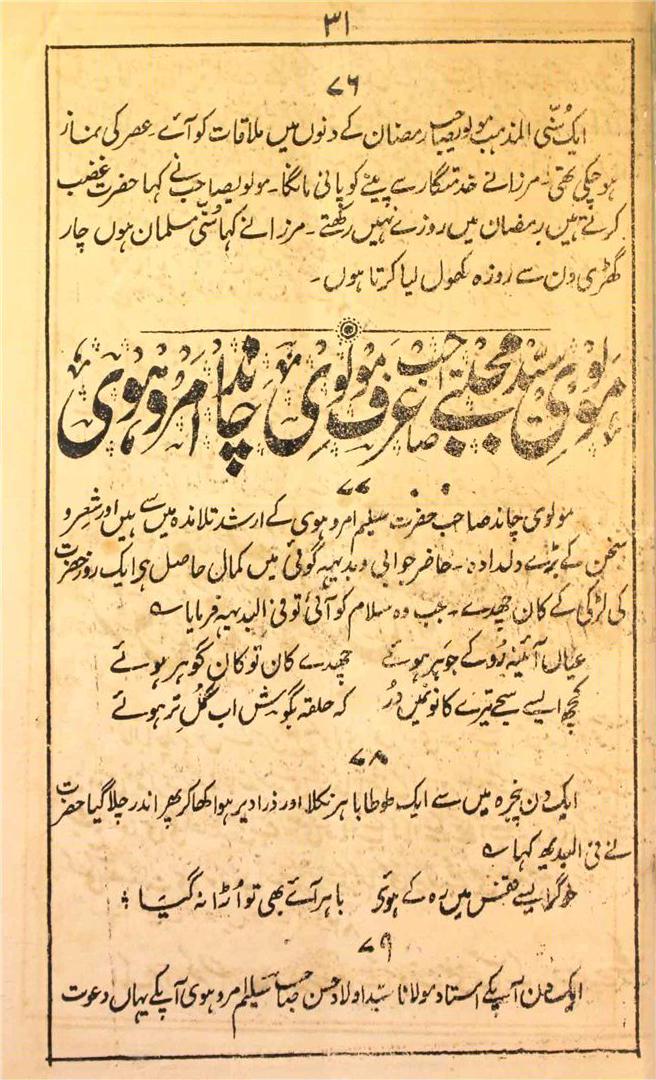 ۳۱
۷۶
ایک سُنّی المذہب مولویصاحب رمضان کے دنوں میں ملاقات کو آئے۔ عصر کی نماز
ہو چکی تھی۔ مرزا نے خدمتگار سے پینے کو پانی مانگا۔ مولویصاحب نے کہا حضرت غضب
کرتے ہیں رمضان میں روزے نہیں رکھتے۔ مرزا نے کہا سُنّی مسلمان ہوں چار
گھڑی دن سے روزہ کھول لیا کرتا ہوں۔
مولوی سید مجتبےٰ صاحب عرف مولوی چاند امروہوی
۷۷
مولوی چاند صاحب حضرت سلیم امروہوی کے ارشد تلامذہ میں سے ہیں اور شعر و
سخن کے بڑے دلدادہ۔ حاضر جوابی و بدیہہ گوئی میں کمال حاصل ہی ایک روز حضرت
کی لڑکی کے کان چھدے۔ جب وہ سلام کو آئی تو فی البدیہہ فرمایا ؎
عیاں آئینہ رُو کے جوہر ہوئے چھدے کان تو کان گوہر ہوئے
کچھ ایسے سجے تیرے کانوں میں دُر کہ حلقہ بگوش اب گلِ تر ہوئے
۷۸
ایک دن پنجرہ میں سے ایک طوطا باہر نکلا اور ذرا دیر ہوا کھا کر پھر اندر چلا گیا حضرت
نے فی البدیہہ کہا ؎
خوگر ایسے قفس میں رہ کے ہوئی باہر آئے بھی تو اُڑا نہ گیا
۷۹
ایک دن آپکے استاد مولانا سید اولاد حسن صاحب سلیم امروہوی آپکے یہاں دعوت